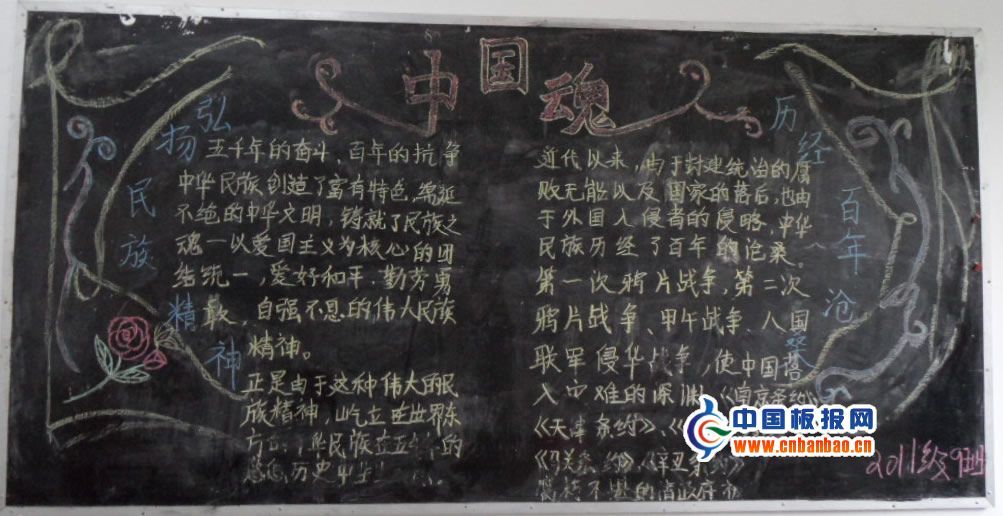 中国魂
弘扬民族精神
五千年的奋斗、百年的抗争
中华民族创造了富有特色,绵延
不绝的中华文明,铸就了民族之
魂—以爱国主义为核心的团
结统一,爱好和平,勤劳勇
敢,自强不息的伟大民族
精神。
正是由于这种伟大的民
族精神,屹立在世界东
方 民族在五 的
历史中
历经百年沧桑
近代以来,由于封建统治的腐
败无能以及国家的落后,也由
于外国入侵者的侵略,中华
民族历经了百年的沧桑。
第一次鸦片战争,第二次
鸦片战争、甲午战争、八国
联军侵华战争,使中国搭
入灾难的深渊《南京条约》
《天津条约》、《
《马关条约》、《辛丑条约》
不堪的清政府
2011级9班
中国板报网
www.cnbanbao.cn